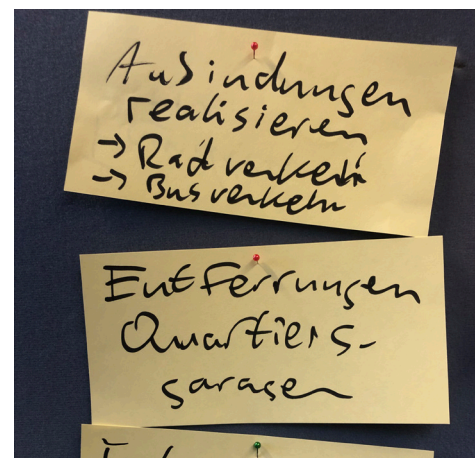 Anbindungen
realisieren
→ Radverkehr
→ Busverkehr
Entferrungen
Quartiers-
garagen